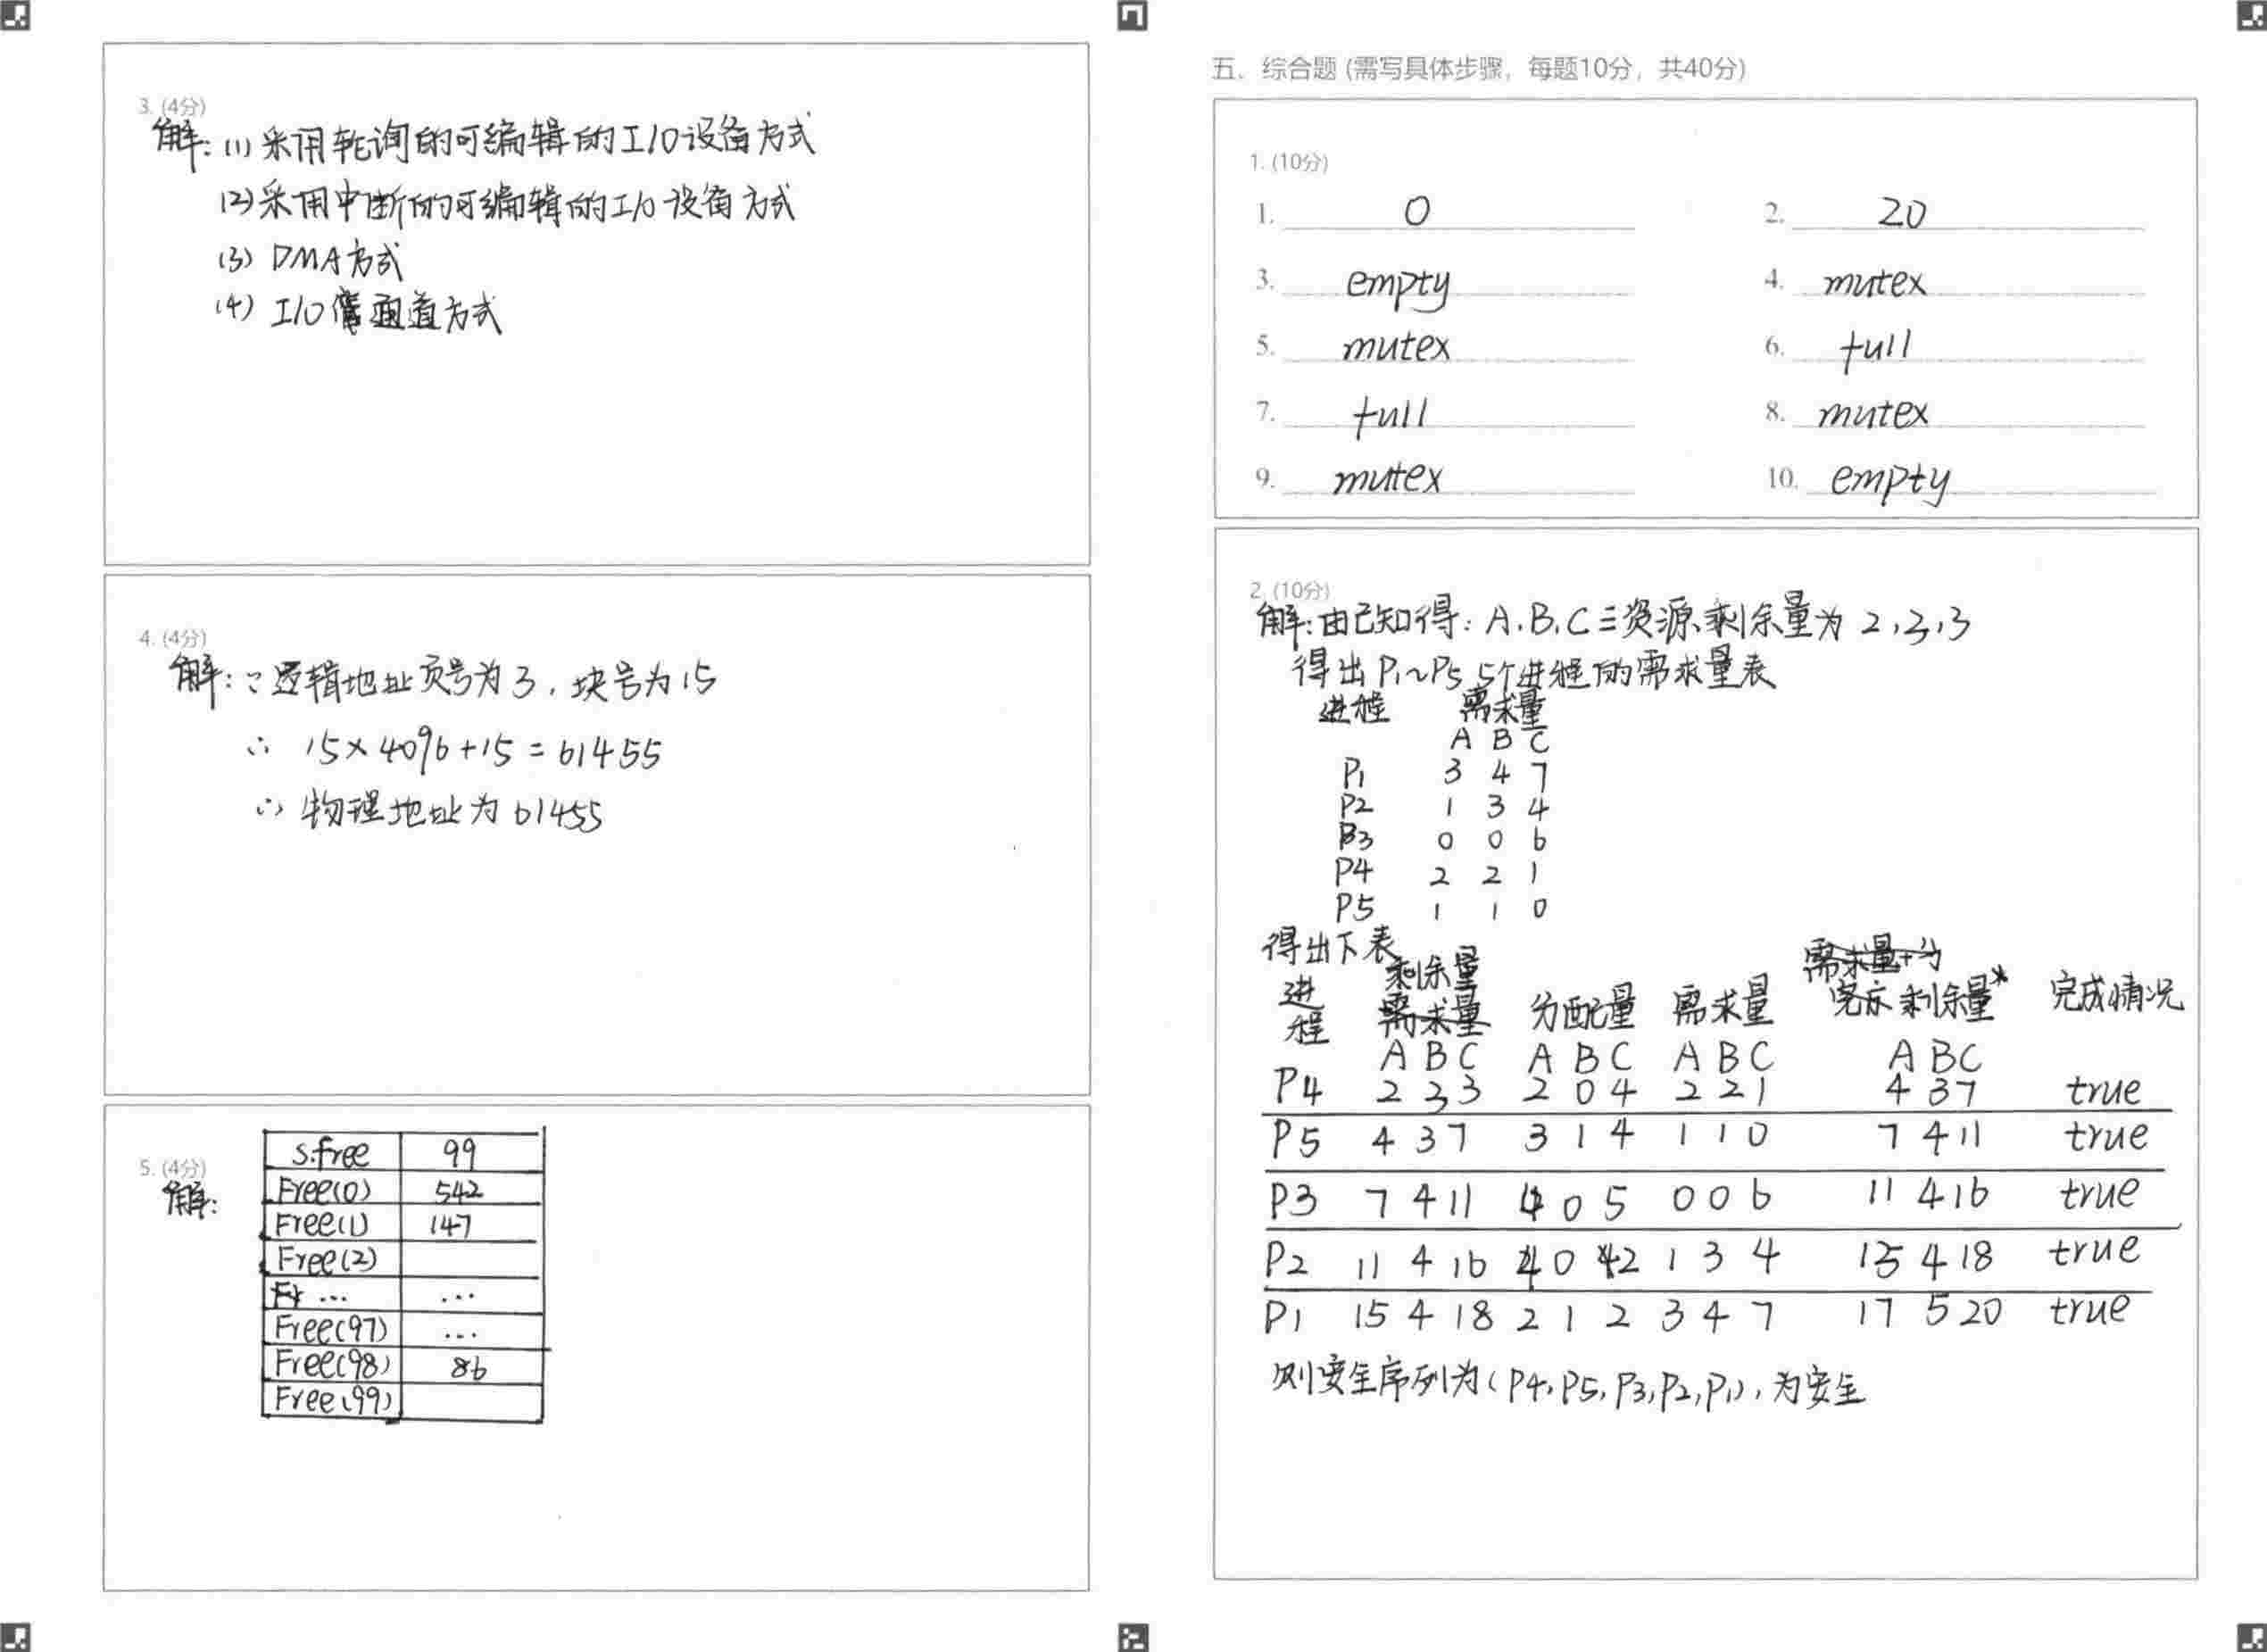 3. (4分)
解: (1) 采用轮询的可编辑的I/O设备方式
(2) 采用中断的可编辑的I/O设备方式
(3) DMA方式
(4) I/O 通道方式
4. (4分)
解: ∵ 逻辑地址页号为3, 块号为15
∴ 15×4096+15=61455
∴ 物理地址为61455
5. (4分)
解:
s.free 99
Free(0) 542
Free(1) 147
Free(2)
... ...
Free(97) ...
Free(98) 86
Free(99)
五、综合题 (需写具体步骤, 每题10分, 共40分)
1. (10分)
1. 0 2. 20
3. empty 4. mutex
5. mutex 6. full
7. full 8. mutex
9. mutex 10. empty
2. (10分)
解: 由已知得: A、B、C三资源剩余量为 2,3,3
得出P1~P5 5个进程的需求量表
进程 需求量
A B C
P1 3 4 7
P2 1 3 4
P3 0 0 6
P4 2 2 1
P5 1 1 0
得出下表
进程 剩余量 分配量 需求量 剩余量* 完成情况
A B C A B C A B C A B C
P4 2 3 3 2 0 4 2 2 1 4 3 7 true
P5 4 3 7 3 1 4 1 1 0 7 4 11 true
P3 7 4 11 4 0 5 0 0 6 11 4 16 true
P2 11 4 16 4 0 2 1 3 4 15 4 18 true
P1 15 4 18 2 1 2 3 4 7 17 5 20 true
则安全序列为(P4,P5,P3,P2,P1), 为安全